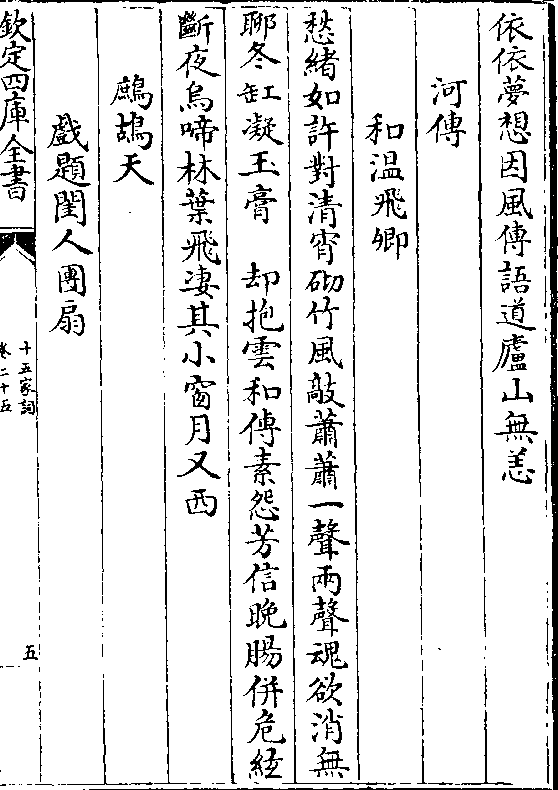 依依夢想因風傳語道廬山無恙
河傳
和溫飛卿
愁緒如許對清宵砌竹風敲蕭蕭一聲兩聲魂欲消無
聊冬缸凝玉膏　却抱雲和傳素怨芳信晚腸併危絃
斷夜烏啼林葉飛凄其小窗月又西
鷓鴣天
戲題閨人團扇
欽定四庫全書
十五家詞
卷二十五
五